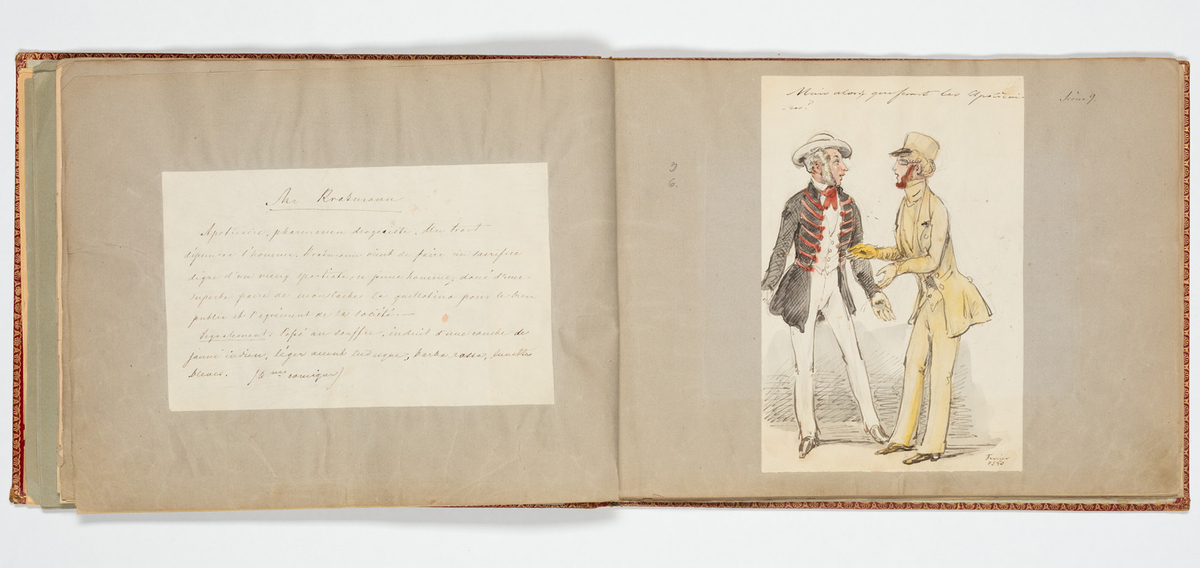 Mr Kratmann
Apoticaire, pharmacien droguiste. Au bout
l'homme, Kratmann vient de faire un sacrifice
digne d'un vieux spartiate, ce jeune homme, doué d'une
superbe paire de moustaches la guillotina pour le bien
public et l'agrément de la société—
Signalement. au souffre, induit d'une couche de
jaune indien, léger accent tudesque, barbe rasse, lunettes
bleues. (6me comique)
Mais alors que font les Apoticai
res?
Scène 9.
9
6.
Fevrier
1850